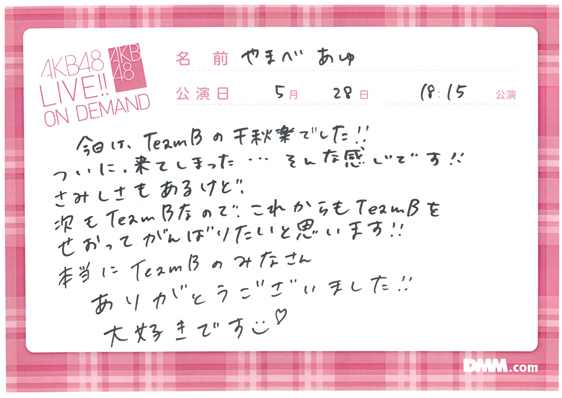 AKB48
LIVE!!
ON DEMAND
AKB
48
名前 やまべ あゆ
公演日 5月 28日 18:15 公演
今日は、TeamBの千秋楽でした!!
ついに、来てしまった… そんな感じです!!
さみしさもあるけど、
次もTeamBなので、これからもTeamBを
せおってがんばりたいと思います!!
本当にTeamBのみなさん
ありがとうございました!!
大好きです♡
DMM.com